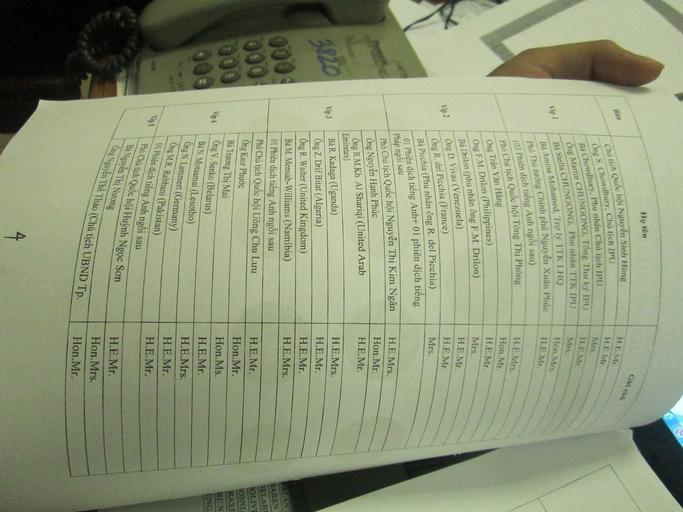 Bàn Họ tên Giới tính
Chủ tịch Quốc hội Nguyễn Sinh Hùng H.E.Mr
Ông S. Chowdhury, Chủ tịch IPU H.E.Mr
Bà Chowdhury, Phu nhân Chủ tịch IPU Mrs.
Ông Martin CHUNGONG, Tổng Thư ký IPU H.E.Mr
Bà Stella CHUNGONG, Phu nhân TTK IPU Mrs.
Bà Amina Mohamed, Trợ lý TTK LHQ Hon.Mrs
Vip 1 Phó Thủ tướng Chính phủ Nguyễn Xuân Phúc H.E.Mr.
(02 Phiên dịch tiếng Anh ngồi sau)
Phó Chủ tịch Quốc hội Tòng Thị Phóng H.E.Mrs.
Ông Trần Văn Hằng Hon.Mr
Ông F.M. Drilon (Philippines) H.E.Mr.
Bà Drilon (phu nhân ông F.M. Drilon) Mrs.
Ông D. Vivas (Venezuela) H.E.Mr.
Ông R. del Picchia (France) H.E.Mr.
Vip 2 Bà Picchia (Phu nhân ông R. del Picchia) Mrs.
01 Phiên dịch tiếng Anh+ 01 phiên dịch tiếng
Pháp ngồi sau
Phó Chủ tịch Quốc hội Nguyễn Thị Kim Ngân H.E.Mrs.
Ông Nguyễn Hạnh Phúc Hon.Mr.
Ông R.M.Kh. Al Shariqi (United Arab H.E.Mr.
Emirates)
Bà R. Kadaga (Uganda) H.E.Mrs.
Vip 3 Ông Z. Drif Bitat (Algeria) H.E.Mr.
Ông R. Walter (United Kingdom) H.E.Mr.
Bà M. Mensah-Williams (Namibia) H.E.Mrs.
01 Phiên dịch tiếng Anh ngồi sau
Phó Chủ tịch Quốc hội Uông Chu Lưu H.E.Mr.
Ông Ksor Phước Hon.Mr.
Bà Trương Thị Mai Hon.Ms.
Vip 4 Ông V. Senko (Belarus) H.E.Mr.
Bà N. Motsamai (Lesotho) H.E.Mrs.
Ông N. Lammert (Germany) H.E.Mr.
Ông M.R. Rabbani (Pakistan) H.E.Mr.
01 Phiên dịch tiếng Anh ngồi sau
Vip 5 Phó Chủ tịch Quốc hội Huỳnh Ngọc Sơn H.E.Mr.
Bà Nguyễn Thị Nương Hon.Mrs.
Ông Nguyễn Thế Thảo (Chủ tịch UBND Tp. Hon.Mr.
4
3820